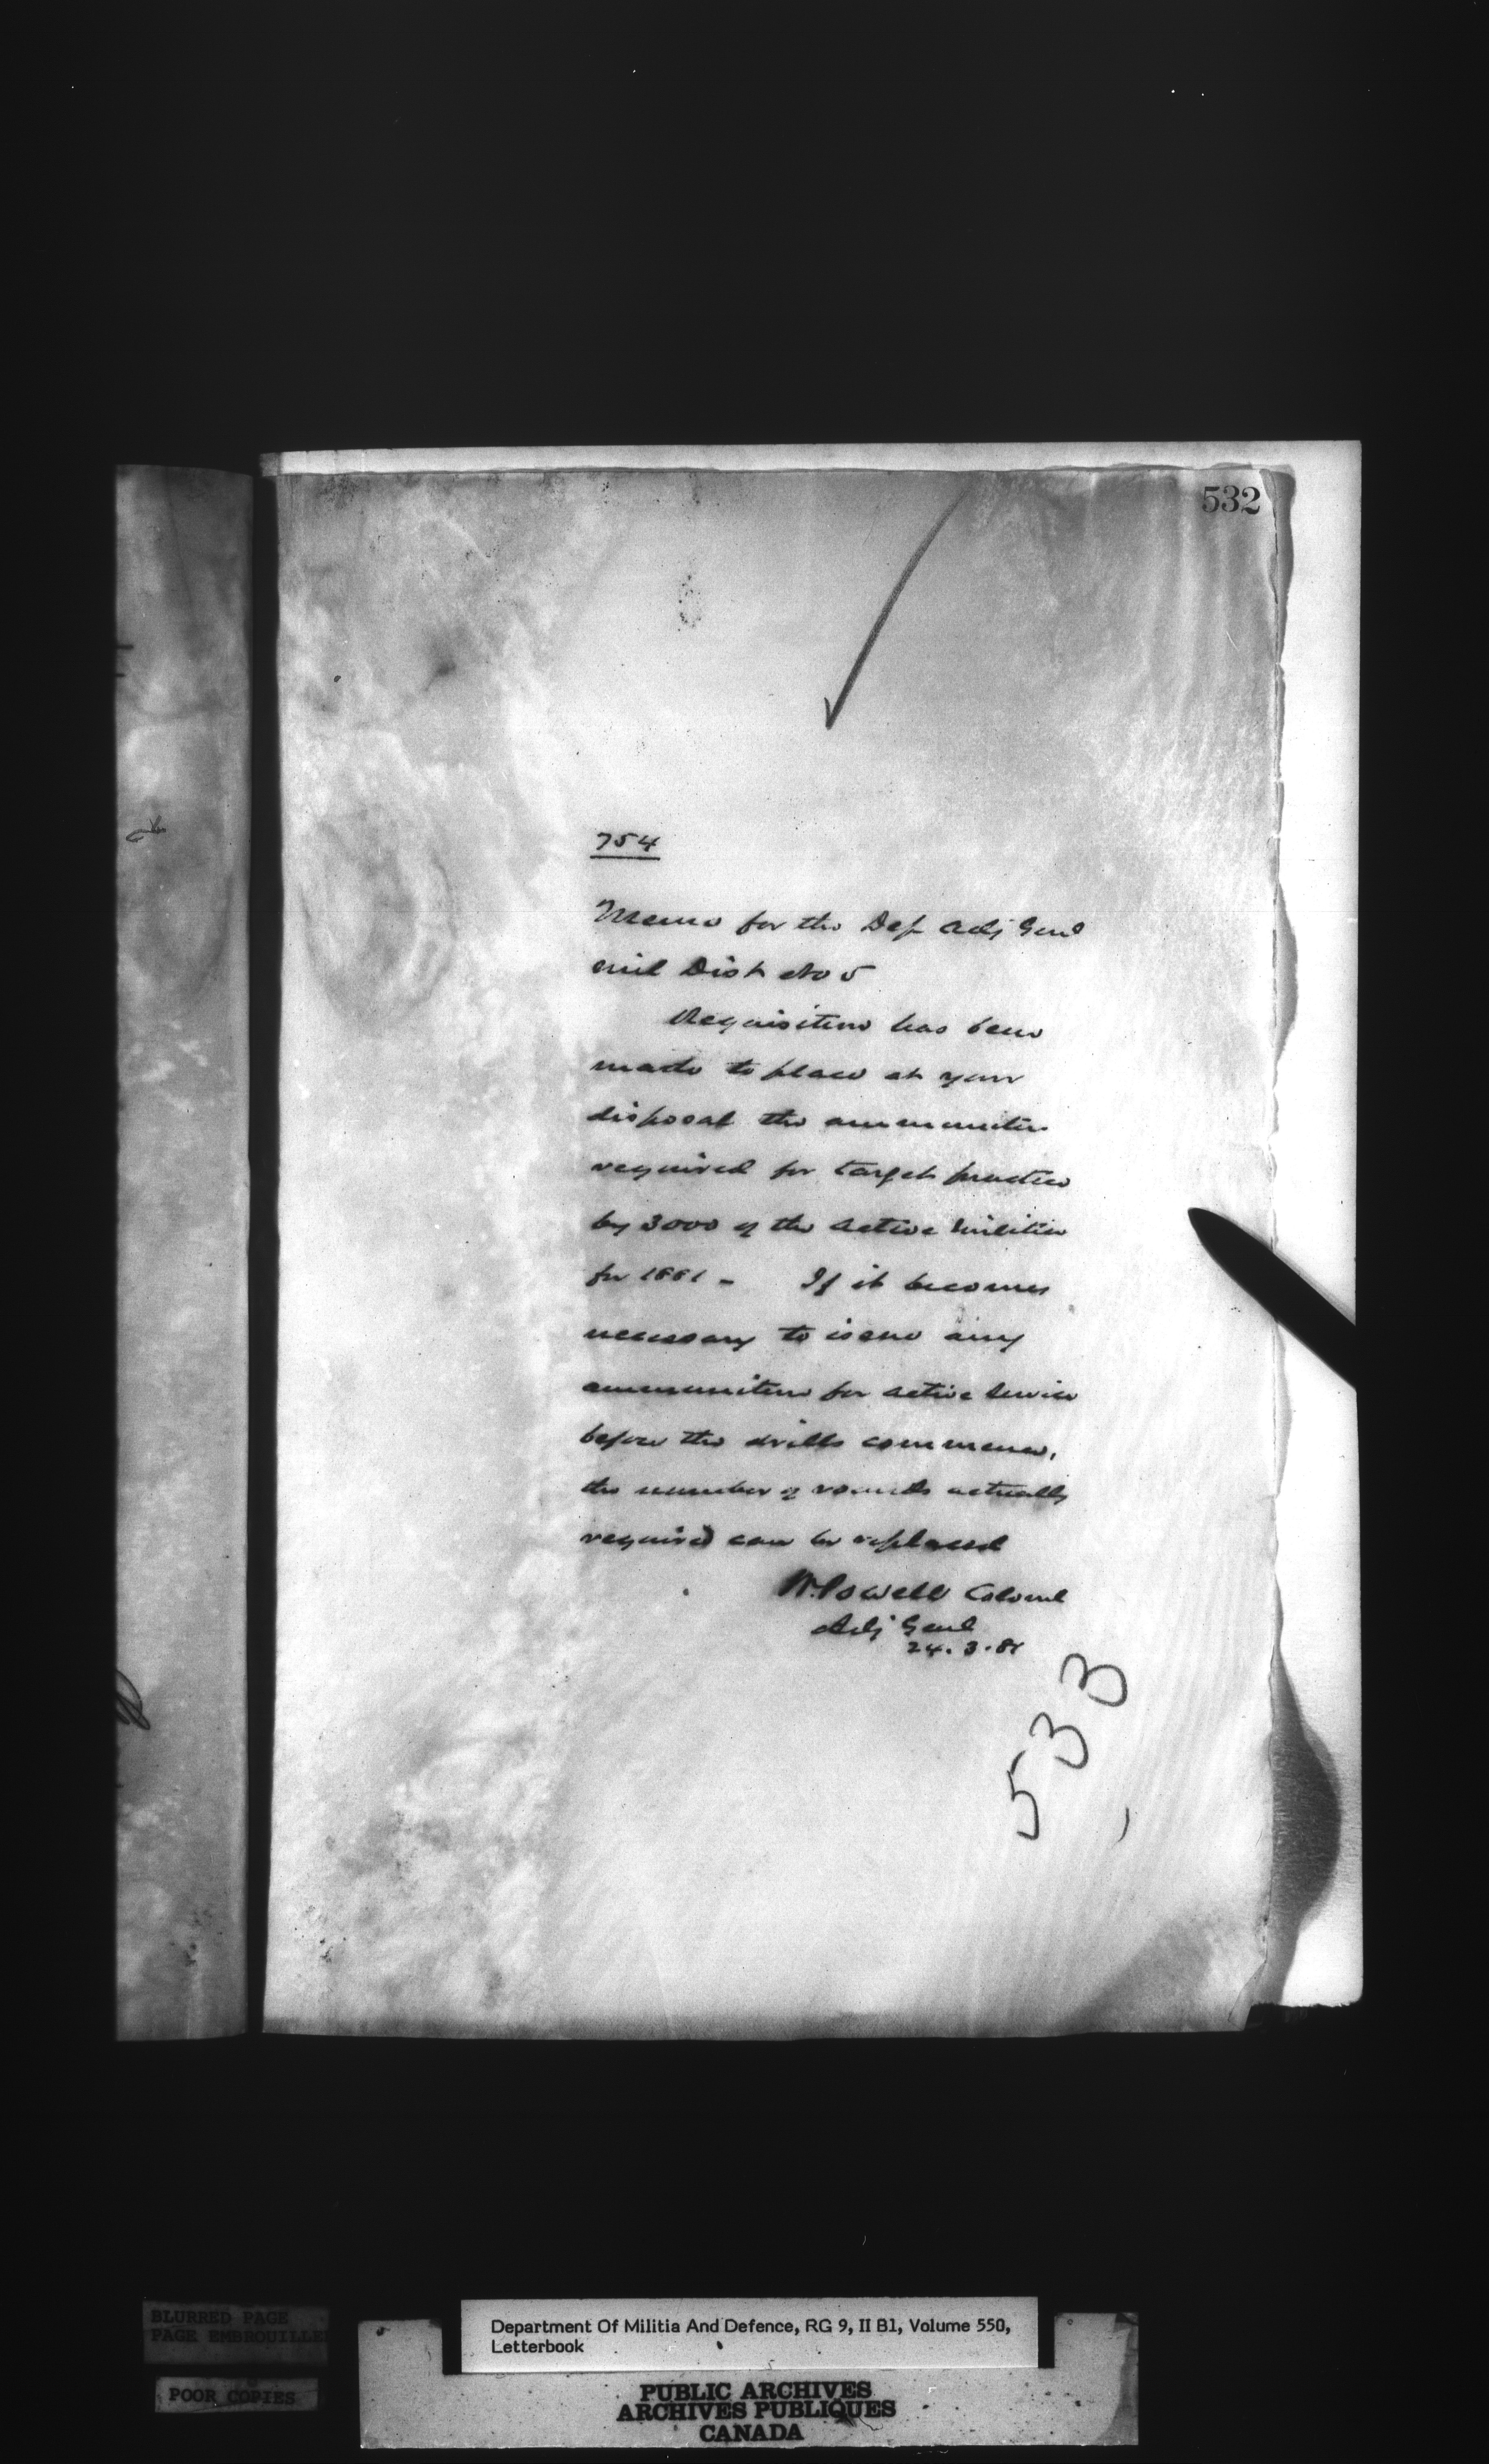 532
754
Memo for the Dep Adj Genl
Mil Dist No 5
Requisition has been
made to place at your
disposal the ammunition
required for target practice
by 3000 of the Active Militia
for 1881 - If it becomes
necessary to issue any
ammunition for active service
before the drills commence,
the number of rounds actually
required can be replaced
W. Powell Colonel
Adj Genl
24.3.81
533
BLURRED PAGE
PAGE EMBROUILLE
POOR COPIES
Department Of Militia And Defence, RG 9, II B1, Volume 550,
Letterbook
PUBLIC ARCHIVES
ARCHIVES PUBLIQUES
CANADA